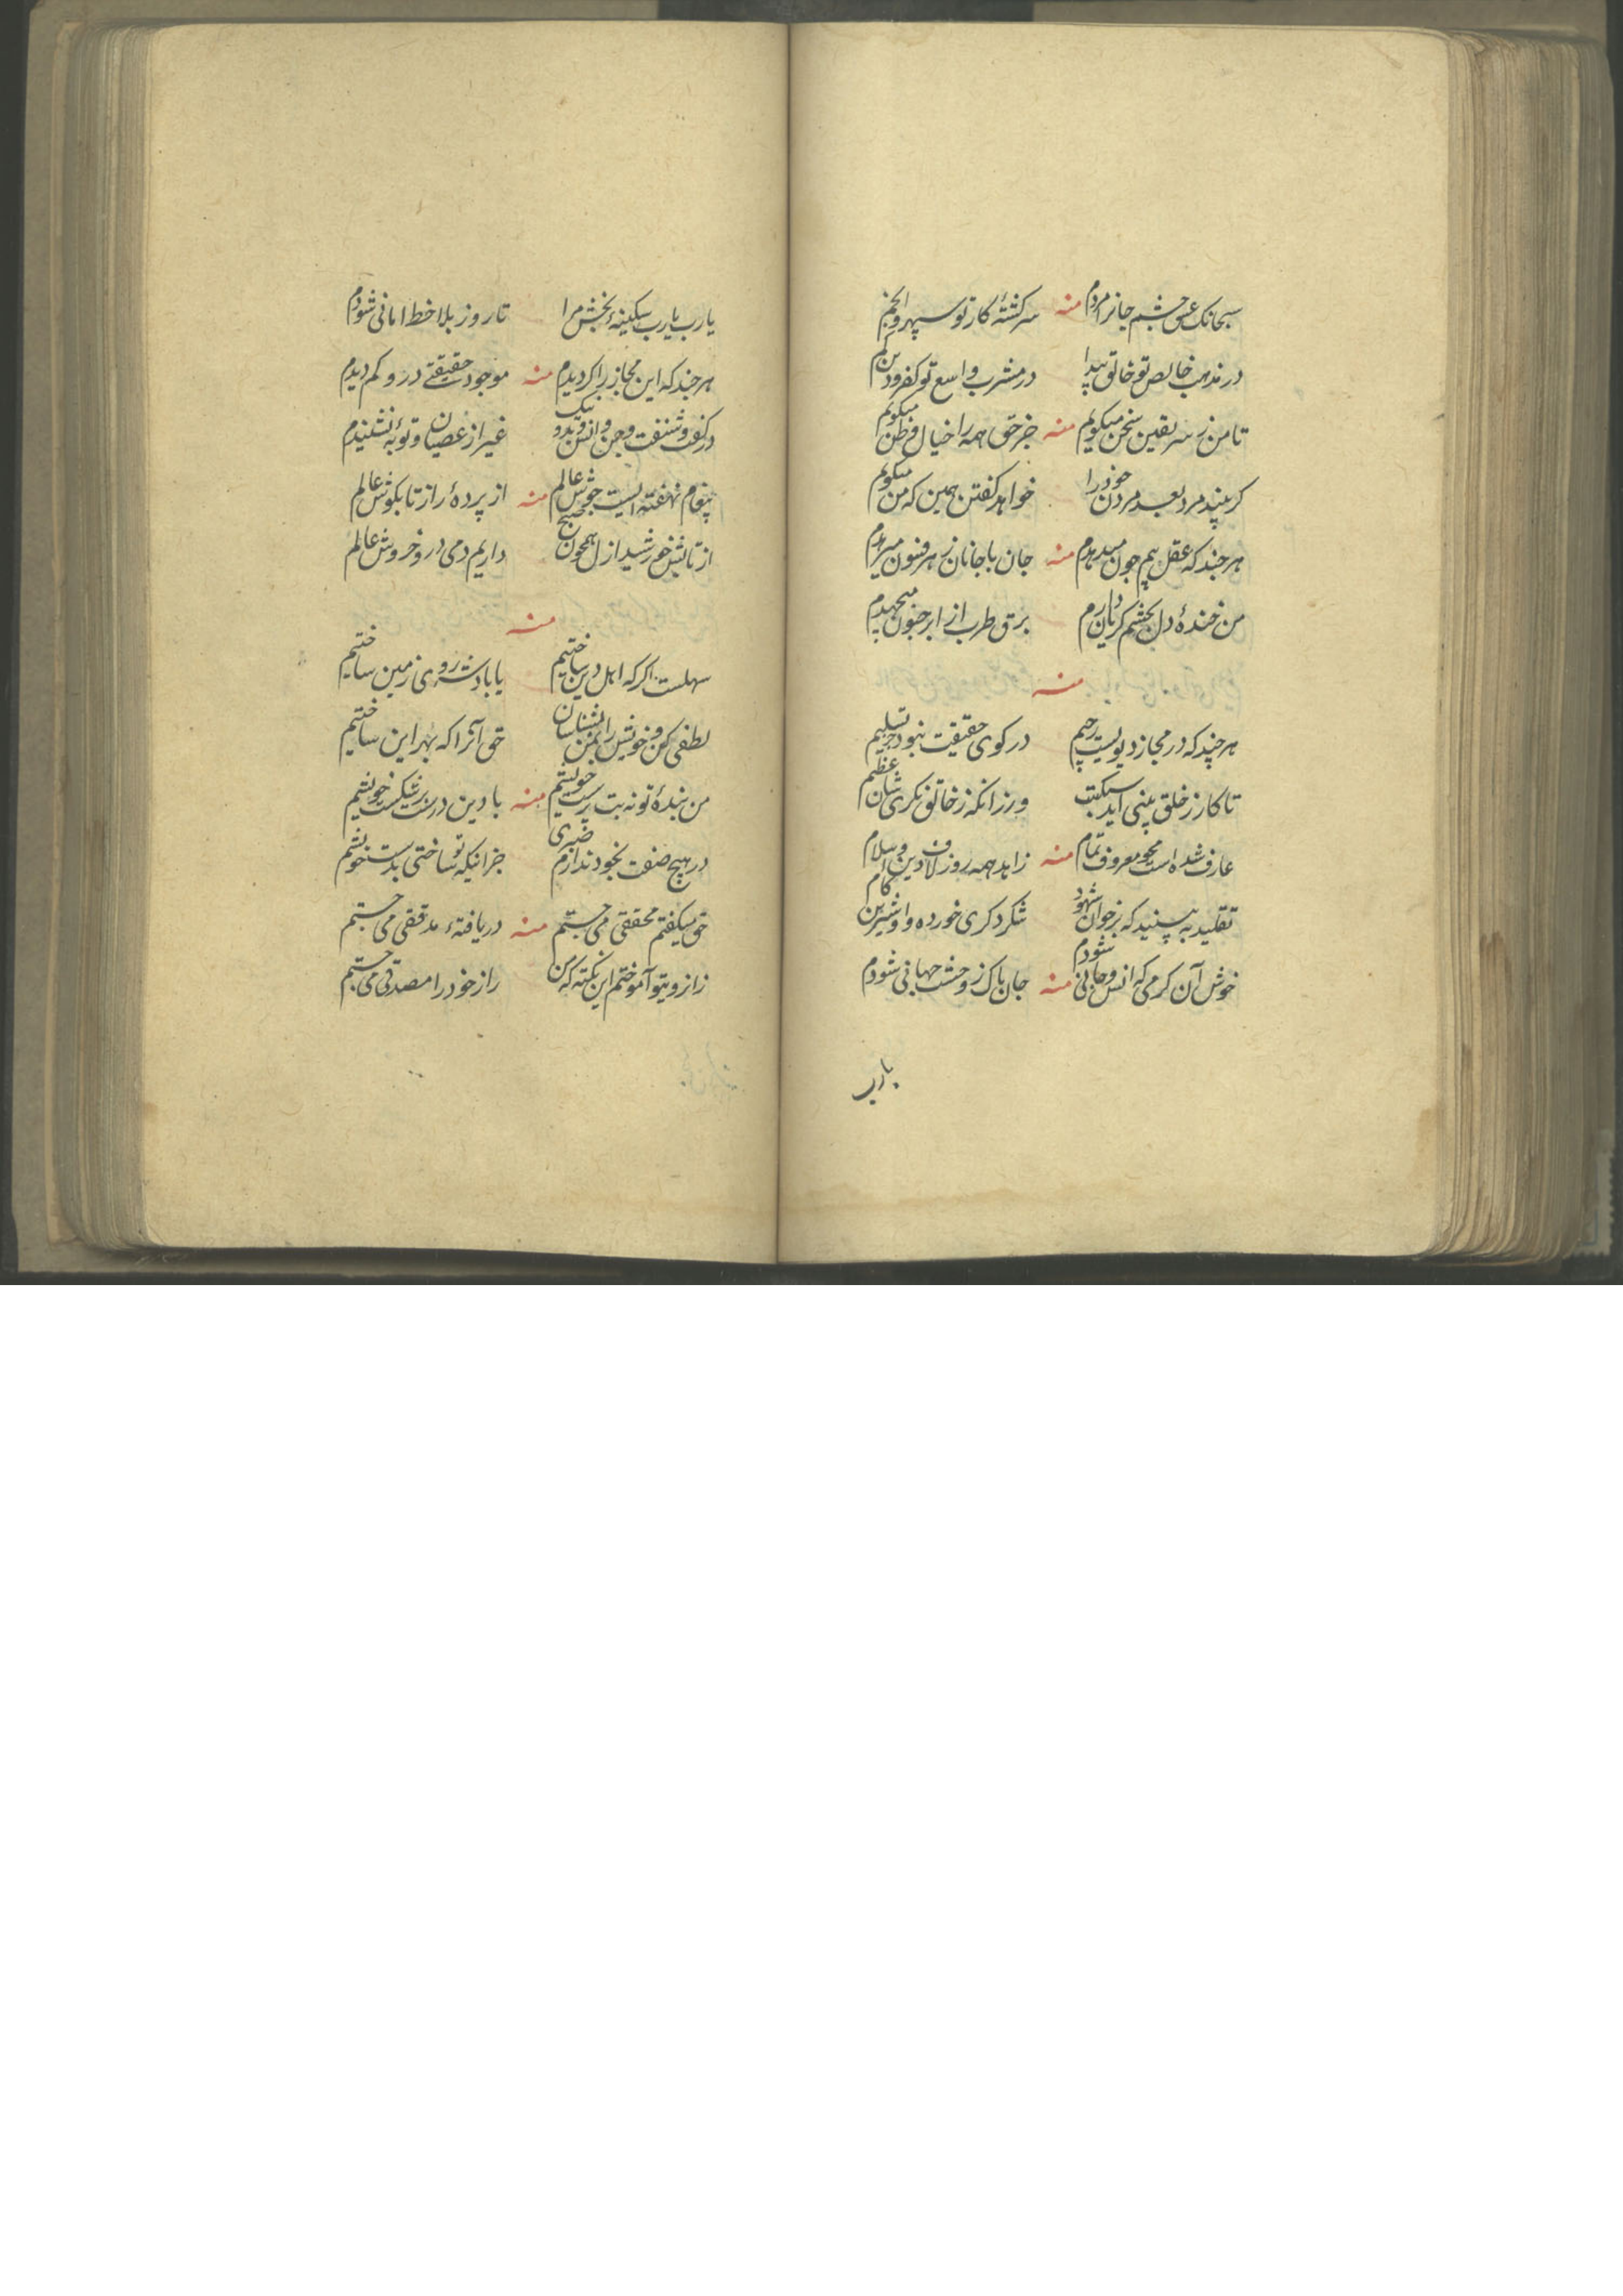 سبحانک عشق چشم جانرا مردم منه سرکشتهٔ کار تو سپهر و انجم
در مذهب خالص تو خالق پیدا در مشرب واسع تو کفر و دین کم
تا من ز سر یقین سخن میکویم منه جز حق همه را خیال و ظن میکویم
کر پند مرد بعد مردن خود را خواهد کفتن همین که من میکویم
هر چند که عقل بیم جون میدهدم منه جان با جانان ز هر فنون میبردم
من خندهٔ دل بچشم کریان دارم برق طرب از ابر جنون میجهدم
منه
هر چند که در مجاز دیویست رجیم در کوی حقیقت نبود جز تسلیم
تا کار ز خلق بینی آید ور زانکه ز خالق نکری شان عظیم
عارف شده است محو معروف تمام منه زاهد همه روز لاف دین و اسلام
تقلید به بینید که بر خوان شهود شکر دکری خورده و او شیرین کام
خوش آن کرمی که انس و جانی شودم منه جان پاک ز وحشت جهانی شودم
یارب
یارب یارب سکینهٔ بخش مرا تا روز بلا خط امانی شودم
هر چند که این مجاز را کردیدم منه موجود حقیقتے درو کم دیدم
در کفت و شنفت و جن و انس و نیک و بد غیر از عصیان و توبهٔ نشنیدم
پیغام نهفته ایست جوش عالم منه از پردهٔ راز تا بکوش عالم
از تابش خورشید ازل همچون صبح داریم دمی درو خروش عالم
منه
سهلست اکر که اهل دین ساختیم یا پادشه روی زمین ساختیم
لطفی کن و خویش را بمن بشناسان حق آنرا که بهر این ساختیم
من بندهٔ تو نه بت پرست خویشم منه با دین درست بر شکست خویشم
در هیچ صفت بخود ندارم خبری جز اینکه تو ساختی بدست خویشم
حق میکفتم محققی می جستم منه دریافتهٔ مدققی می جستم
زانرو بتو آموختم این نکته که من راز خود را مصدقی می جستم